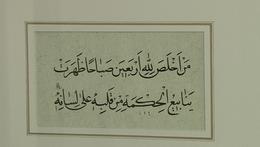 مَنْ أَخْلَصَ لِلّٰهِ أَرْبَعِينَ صَبَاحًا ظَهَرَتْ
يَنَابِيعُ الْحِكْمَةِ مِنْ قَلْبِهِ عَلَى لِسَانِهِ